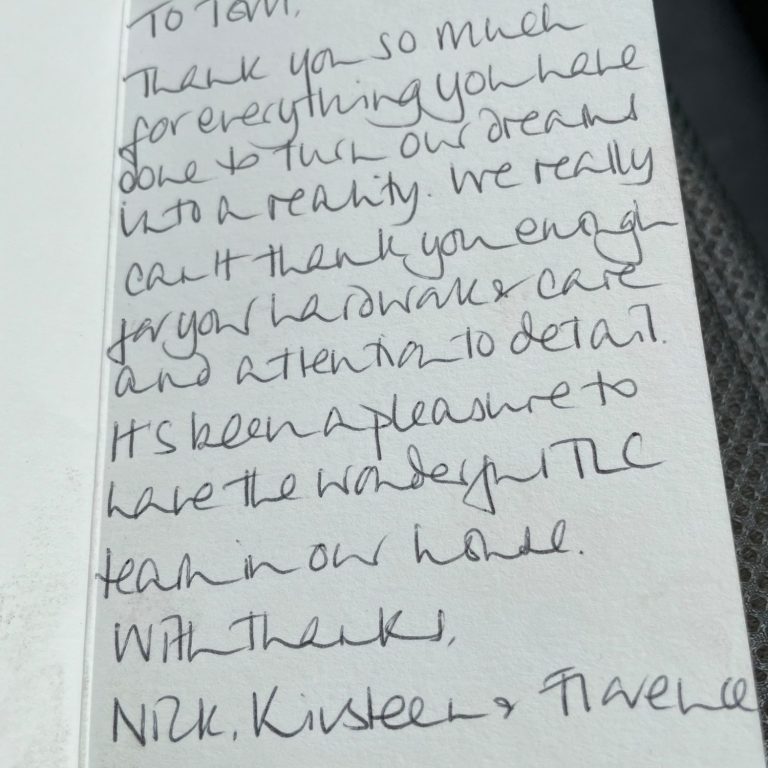 To Tom,
Thank you so much
for everything you have
done to turn our dreams
into a reality. We really
can't thank you enough
for your hardwork & care
and attention to detail.
It's been a pleasure to
have the wonderful TLC
team in our house.
With thanks,
Nick, Kirsteen & Florence